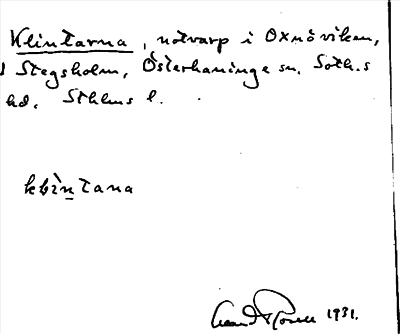 Klintarna, notvarp i Oxnöviken,
Stegsholm, Österhaninge sn. Soth.s
hd. Sthlms l.
kḷìntana
1931.